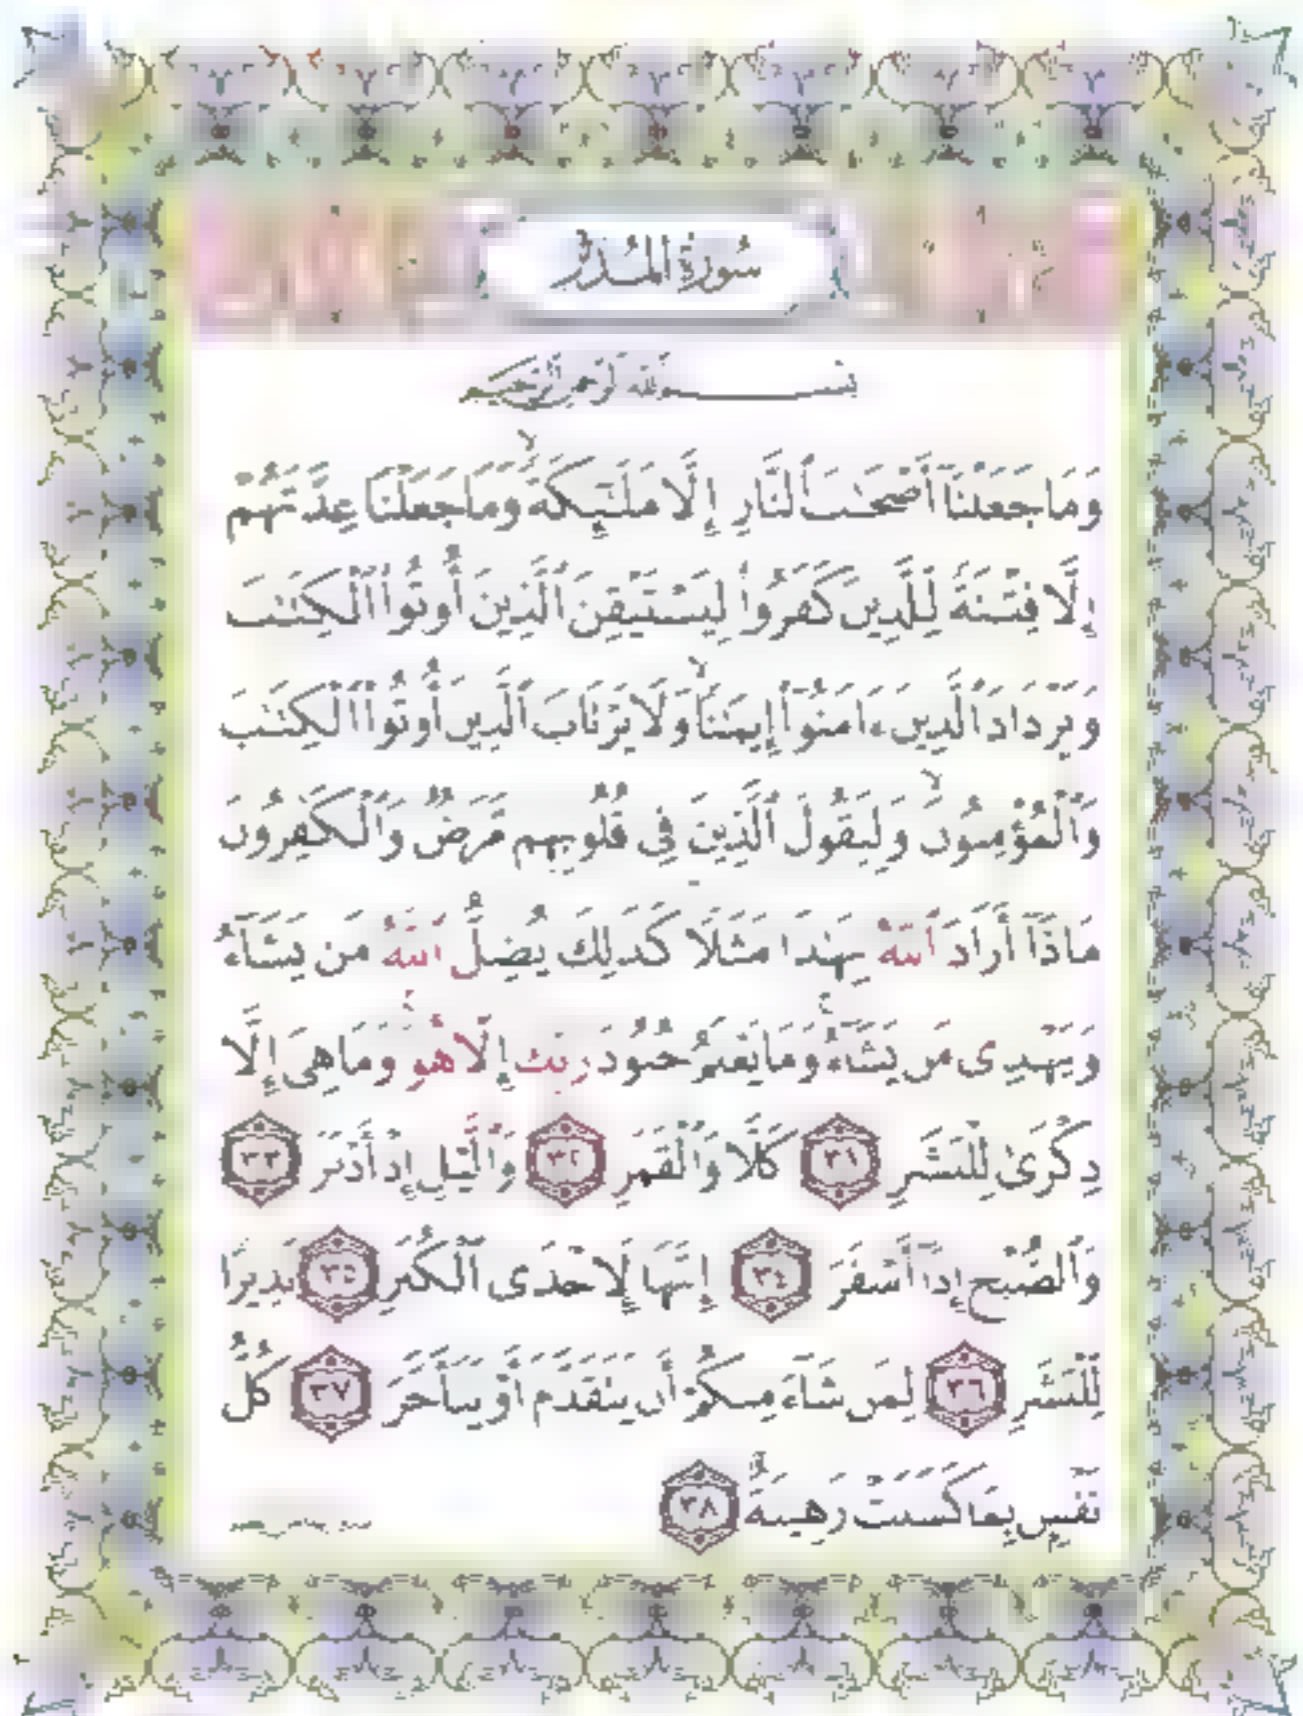 سُورَةُ المُدَّثِّر
بِسْمِ ٱللَّهِ ٱلرَّحْمَٰنِ ٱلرَّحِيمِ
وَمَا جَعَلْنَآ أَصْحَٰبَ ٱلنَّارِ إِلَّا مَلَٰٓئِكَةً ۙ وَمَا جَعَلْنَا عِدَّتَهُمْ
إِلَّا فِتْنَةً لِّلَّذِينَ كَفَرُوا۟ لِيَسْتَيْقِنَ ٱلَّذِينَ أُوتُوا۟ ٱلْكِتَٰبَ
وَيَزْدَادَ ٱلَّذِينَ ءَامَنُوٓا۟ إِيمَٰنًا ۙ وَلَا يَرْتَابَ ٱلَّذِينَ أُوتُوا۟ ٱلْكِتَٰبَ
وَٱلْمُؤْمِنُونَ ۙ وَلِيَقُولَ ٱلَّذِينَ فِى قُلُوبِهِم مَّرَضٌ وَٱلْكَٰفِرُونَ
مَاذَآ أَرَادَ ٱللَّهُ بِهَٰذَا مَثَلًا كَذَٰلِكَ يُضِلُّ ٱللَّهُ مَن يَشَآءُ
وَيَهْدِى مَن يَشَآءُ ۚ وَمَا يَعْلَمُ جُنُودَ رَبِّكَ إِلَّا هُوَ ۚ وَمَا هِىَ إِلَّا
ذِكْرَىٰ لِلْبَشَرِ ٣١ كَلَّا وَٱلْقَمَرِ ٣٢ وَٱلَّيْلِ إِذْ أَدْبَرَ ٣٣
وَٱلصُّبْحِ إِذَآ أَسْفَرَ ٣٤ إِنَّهَا لَإِحْدَى ٱلْكُبَرِ ٣٥ نَذِيرًا
لِّلْبَشَرِ ٣٦ لِمَن شَآءَ مِنكُمْ أَن يَتَقَدَّمَ أَوْ يَتَأَخَّرَ ٣٧ كُلُّ
نَفْسٍۭ بِمَا كَسَبَتْ رَهِينَةٌ ٣٨